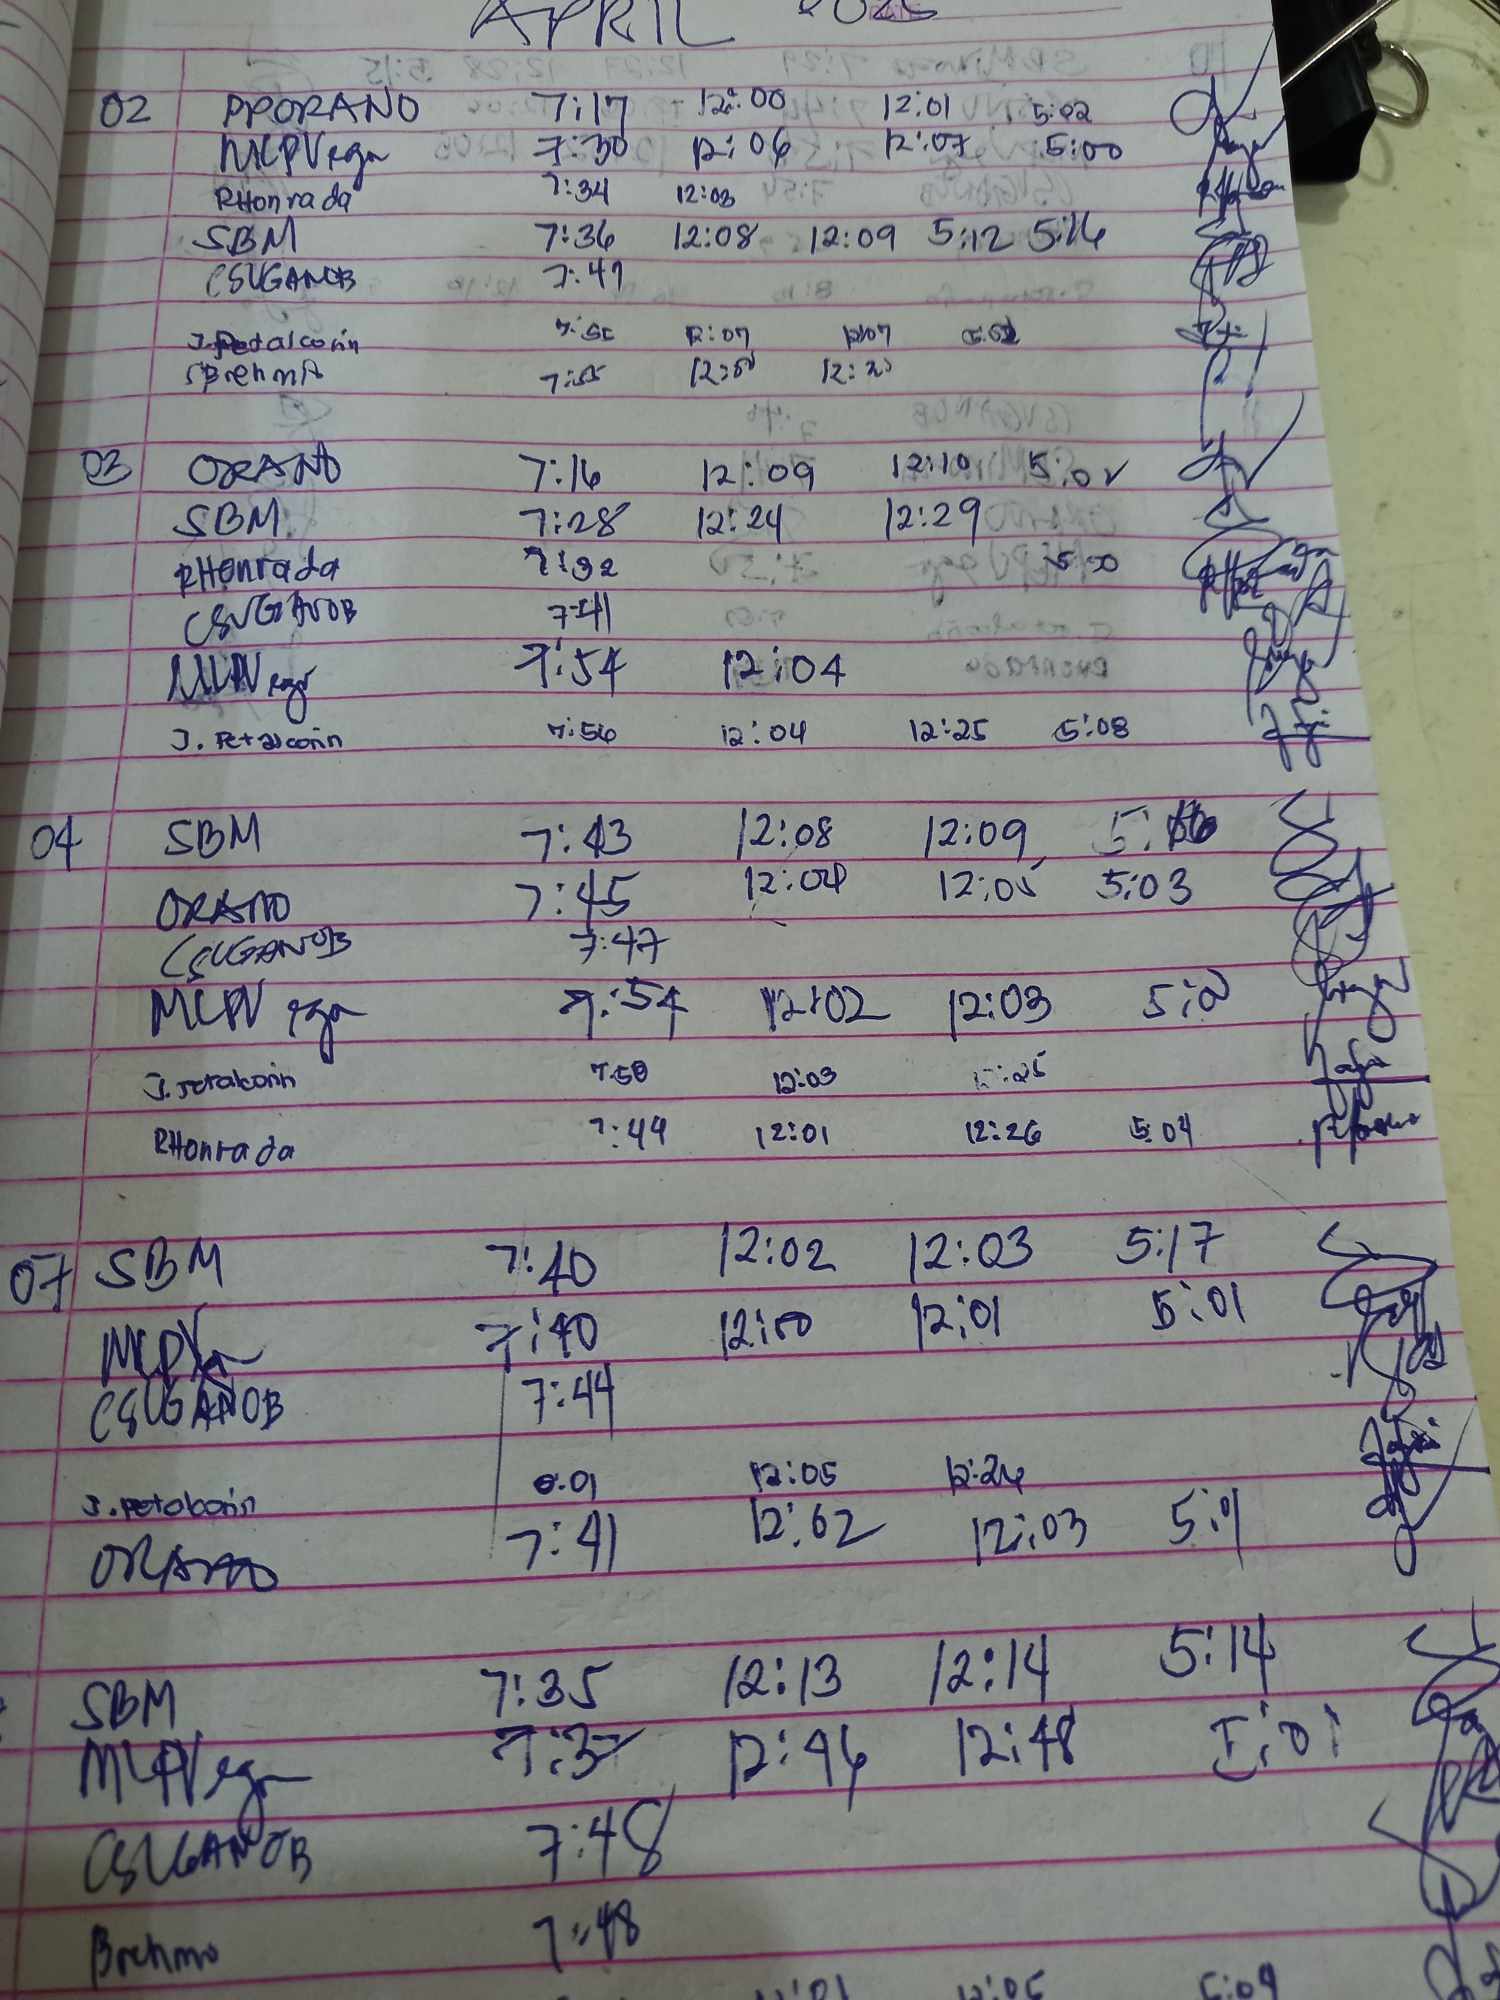 APRIL 2025
02 PPORANO 7:17 12:00 12:01 5:02
MCPVega 7:30 12:06 12:07 5:00
RHonrada 7:34 12:03
SBM 7:36 12:08 12:09 5:12 5:16
CSUGANOB 7:49
J. Petalcorin 12:07 12:07
7:55
03 ORANO 7:16 12:09 12:10 5:02
SBM 7:28 12:24 12:29
RHonrada 7:32 5:00
CSUGANOB 7:41
MCPVega 7:54 12:04
J. Petalcorin 7:56 12:04 12:25 5:08
04 SBM 7:43 12:08 12:09
ORANO 7:45 12:04 12:05 5:03
CSUGANOB 7:47
MCPVega 7:54 12:02 12:03
J. Petalcorin 7:58 12:03
RHonrada 7:49 12:01 12:26 5:04
07 SBM 7:40 12:02 12:03 5:17
MCPVega 7:40 12:00 12:01 5:01
CSUGANOB 7:44
J. Petalcorin 8:01 12:05 12:24
ORANO 7:41 12:02 12:03 5:01
SBM 7:35 12:13 12:14 5:14
MCPVega 7:37 12:46 12:48 5:01
CSUGANOB 7:48
Brehma 7:48
12:05 5:09